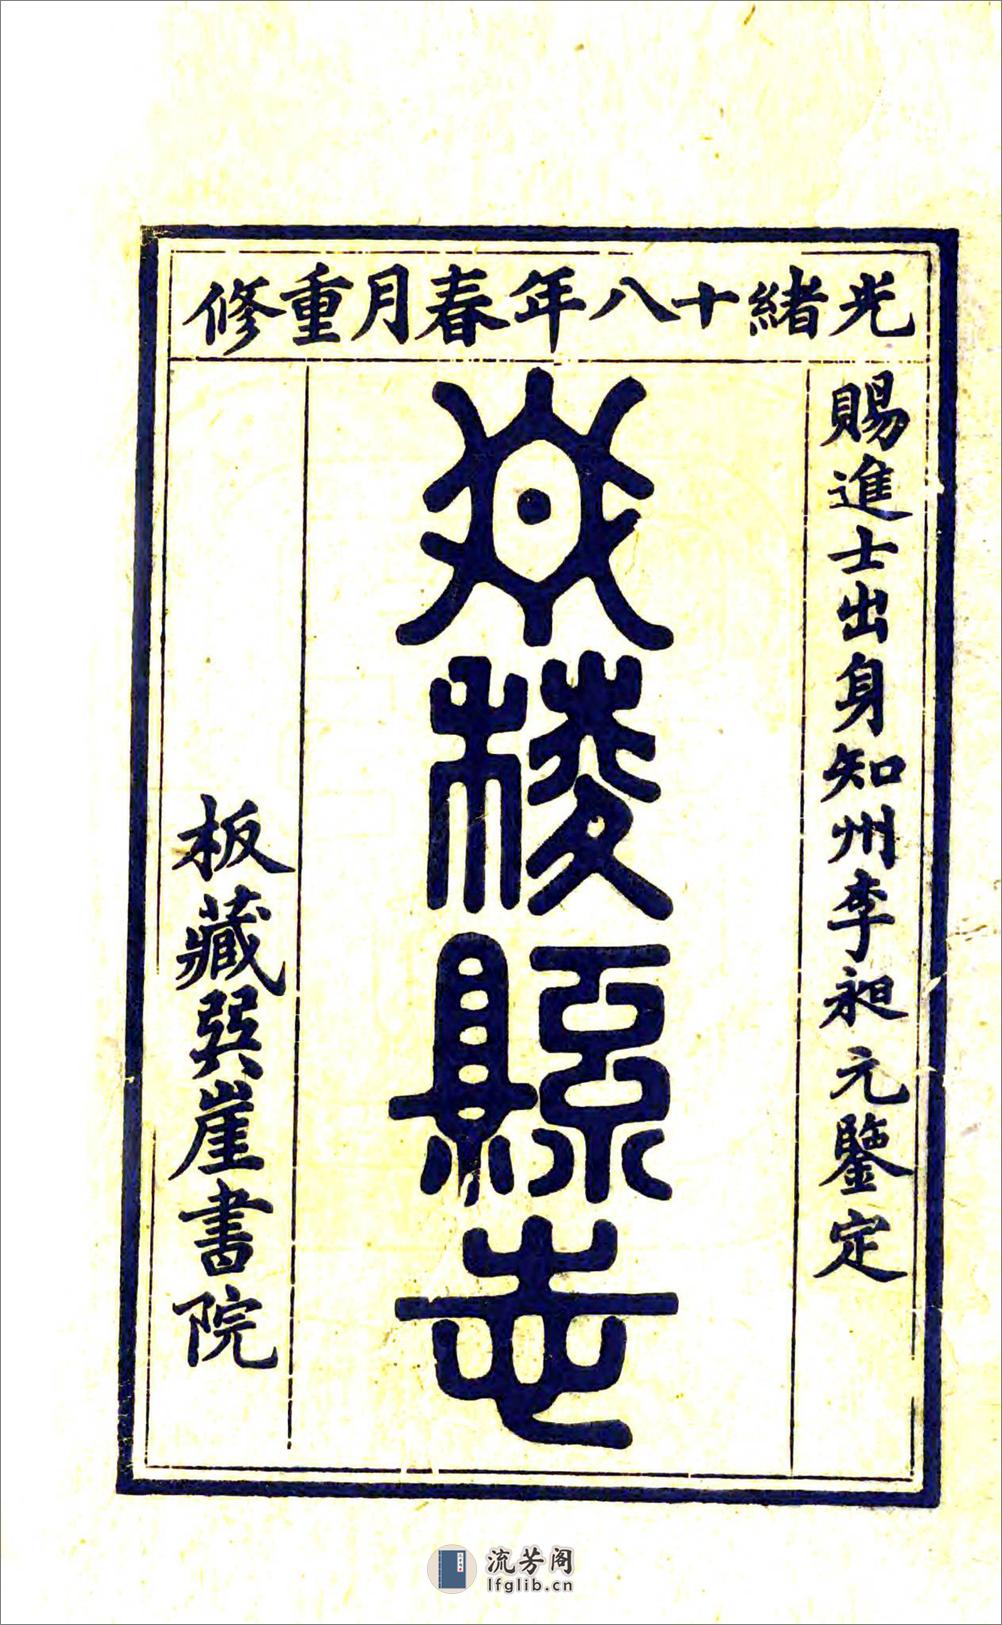 光緒十八年春月重修
賜進士出身知州李昶元鑒定
丹稜縣志
板藏巽崖書院
流芳阁
lfglib.cn